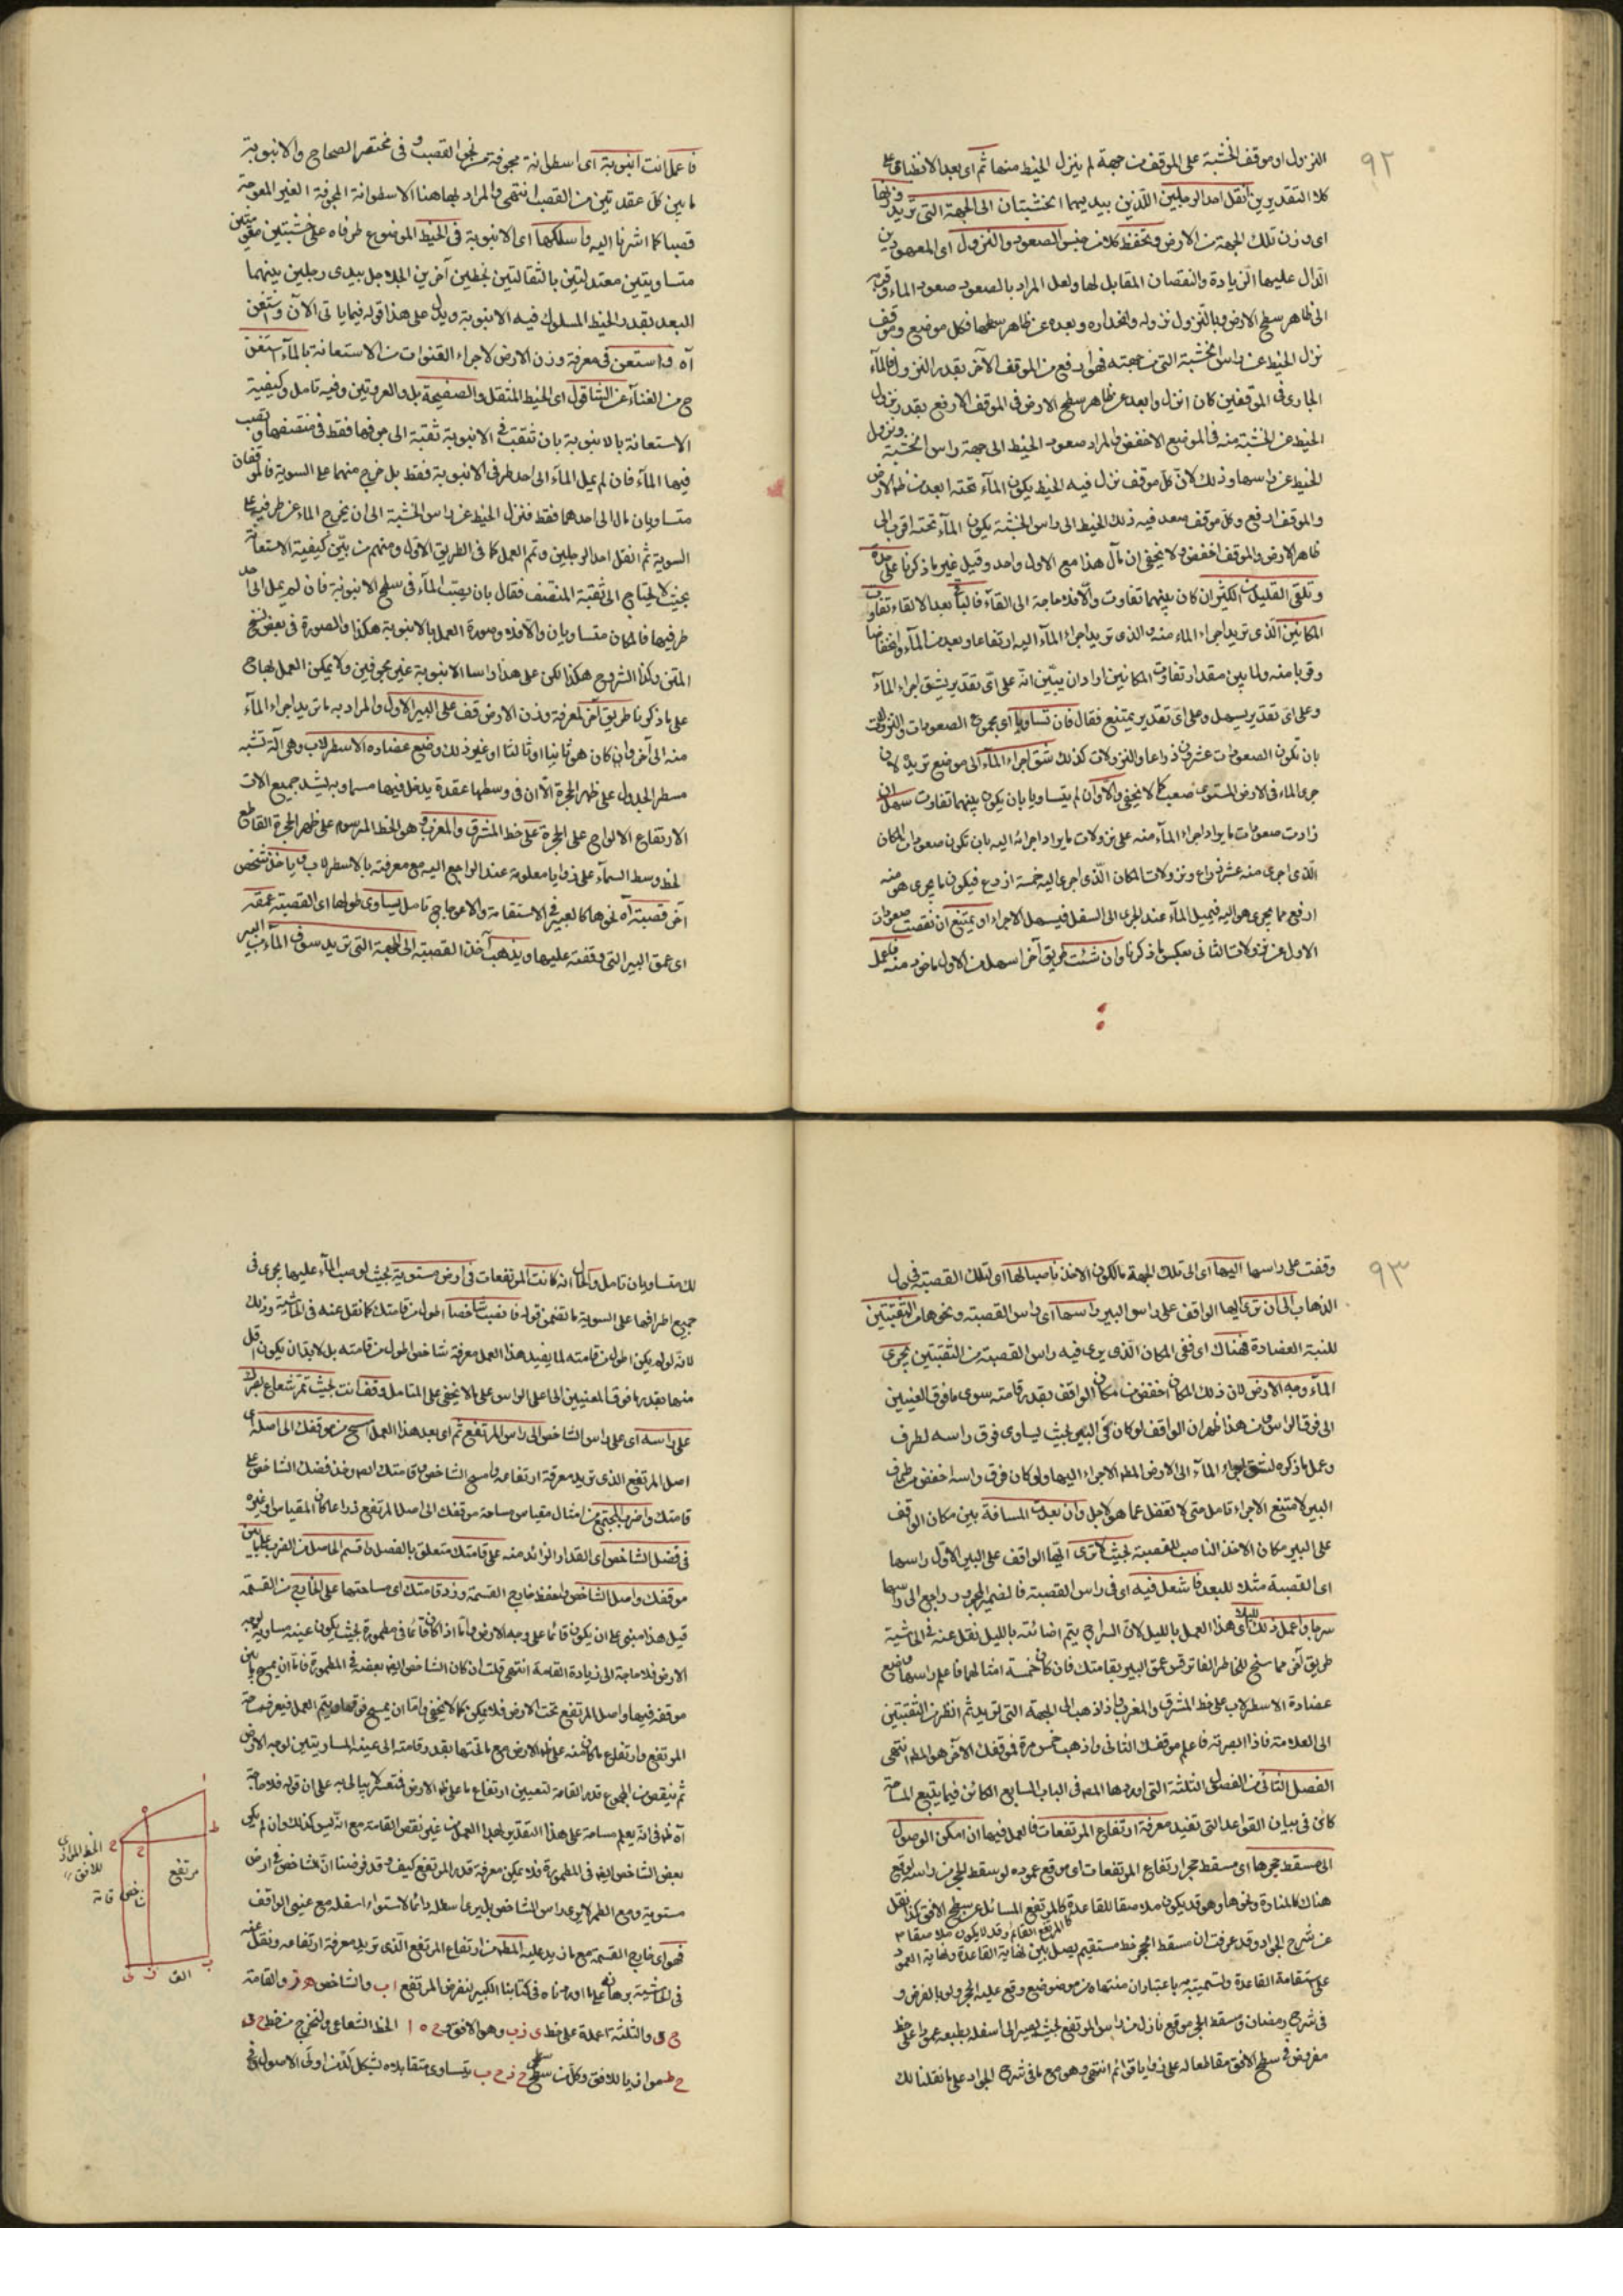 ٩٢
النزول او موقف الخشبة على الموقف من جهة لم ينزل الخيط منها ثم اى بعد الانطباق على
كلا التقديرين انقل احد الرجلين اللذين بيديهما الخشبتان الى الجهة التى تريد وزنها
اى وزن تلك الجهة من الارض وتحفظ كلا من جنس الصعود والنزول اى المعهودين
الدال عليهما الزيادة والنقصان المقابل لها ولعل المراد بالصعود صعود الماء وقربه
الى ظاهر سطح الارض وبالنزول نزوله وانحداره وبعده عن ظاهر سطحها فكل موضع وموقف
نزل الخيط عن راس الخشبة التى من جهته فهو ارفع من الموقف الآخر بقدر النزول فالمآء
الجارى فى الموقفين كان انزل وابعد عن ظاهر سطح الارض فى الموقف الارفع بقدر نزول
الخيط عن الخشبة منه فى الموضع الاخفض والمراد صعود الخيط الى جهة راس الخشبة ونزول
الخيط عن راسها وذلك لان كل موقف نزل فيه الخيط يكون المآء تحته ابعد من ظهر الارض
والموقف ارفع وكل موقف صعد فيه ذلك الخيط الى راس الخشبة يكون المآء تحته اقرب الى
ظاهر الارض والموقف اخفض ولا يخفى ان مآل هذا مع الاول واحد وقيل غير ما ذكرنا على حدة
وتلقى القليل من الكثير ان كان بينهما تفاوت والا فلا حاجة الى القآء فالباقى بعد الالقاء تفاوت
المكانين الذى تريد اجراء الماء منه والذى تريد اجراء المآء اليه ارتفاعا وبعد من المآء وانخفاضا
وقربا منه ولما بين مقدار تفاوت المكانين اراد ان يبين انه على اى تقدير يشق اجراء المآء
وعلى اى تقدير يسهل وعلى اى تقدير يمتنع فقال فان تساويا اى مجموع الصعودات والنزولات
بان تكون الصعودات عشرين ذراعا والنزولات كذلك شق اجراء المآء الى موضع تريد لان
جرى الماء فى الارض المستوى صعب كما لا يخفى والا وان لم يتساويا بان يكون بينهما تفاوت سهل ان
زادت صعودات ما يراد اجراء المآء منه على نزولات ما يراد اجرائه اليه بان تكون صعودات المكان
الذى اجرى منه عشر ذراع ونزولات المكان الذى اجرى اليه خمسة اذرع فيكون ما يجرى هو منه
ارفع مما يجرى هو اليه فيميل المآء عند الجرى الى السفل فيسهل الاجراء او يمتنع ان نقصت صعودات
الاول عن نزولات الثانى بعكس ما ذكرنا وان شئت طريق آخر اسهل من الاول ماخوذ منه فاعمل
فاعمل انت انبوبة اى اسطوانة مجوفة من نحو القصب وفى مختصر الصحاح والانبوبة
ما بين كل عقدتين من القصب انتهى والمراد بها هنا الاسطوانة المجوفة الغير المعوجة
قصبا كما اشرنا اليه واسلكها اى الانبوبة فى الخيط الموضوع طرفاه على خشبتين مقومتين
متساويتين معتدلتين بالثقالتين بخطين آخرين الجلاجل بيدى رجلين بينهما
البعد بقدر الخيط المسلوك فيه الانبوبة ويدل على هذا قوله فيما ياتى الآن وتستغن
آه واستعن فى معرفة وزن الارض لاجراء القنوات من الاستعانة بالمآء استغن
ح من الغنآء عن الشاقول اى الخيط المثقل والصفيحة بل والعروتين وفيه تامل وكيفية
الاستعانة بالانبوبة بان تثقب فى الانبوبة ثقبة الى جوفها فقط فى منتصفها ويصب
فيها المآء فان لم يمل المآء الى احد طرفى الانبوبة فقط بل خرج منهما على السوية فالموقفان
متساويان وان مال الى احدهما فقط فنزل الخيط عن راس الخشبة الى ان يخرج الماء عن طرفيه على
السوية ثم انقل احد الرجلين وتمم العمل كما فى الطريق الاول ومنهم من بين كيفية الاستعانة
بحيث لا يحتاج الى ثقبة المنتصف فقال بان يصب المآء فى سطح الانبوبة فان لم يمل الى احد
طرفيها فالمكان متساويان والا فلا وصورة العمل بالانبوبة هكذا والصورة فى بعض نسخ
المتن وكذا الشروح هكذا لكن على هذا راسا الانبوبة غير مجوفين ولا يمكن العمل بها ح
على ما ذكرنا طريق آخر لمعرفة وزن الارض قف على البير الاول والمراد به ما تريد اجراء المآء
منه الى آخر وان كان هو ثانيا او ثالثا او غير ذلك وضع عضادة الاسطرلاب وهى آلة تشبه
مسطر الجدول على ظهر الحجرة الا ان فى وسطها عقدة يدخل فيها مسمار به يشد جميع الات
الارتفاع الالواح على الحجرة على خط المشرق والمغرب وهو الخط المرسوم على ظهر الحجرة القاطع
لخط وسط السمآء على زوايا معلومة عند الراجع اليه مع معرفته بالاسطرلاب وياخذ شخص
آخر قصبة آه نحوها كالعبير فى الاستقامة والاعوجاج تامل يساوى طولها اى القصبة عمقه
اى عمق البير التى وقفت عليها ويذهب آخذ القصبة الى الجهة التى تريد سوق المآء من البير
٩٣
وقفت على راسها اليها اى الى تلك الجهة مالكون الاخذ ناصبا لها اى لتلك القصبة فى حال
الذهاب الى ان ترى ايها الواقف على راس البير راسها اى راس القصبة ونحوها من الثقبتين
للنبة العضادة فهناك اى ففى المكان الذى يرى فيه راس القصبة من الثقبتين يجرى
المآء وجه الارض لان ذلك المكان اخفض من مكان الواقف بقدر قامته سوى ما فوق العينين
الى فوق الراس ومن هذا ظهر ان الواقف لو كان فى البير بحيث يساوى فوق راسه لطرف
وعمل ما ذكره لشق اجراء المآء الى الارض المط الاجراء اليها ولو كان فوق راسه اخفض من طرف
البير لامتنع الاجراء تامل متى لا تغفل عما هو لاجل وان بعدت المسافة بين مكان الواقف
على البير مكان الاخذ الناصب للقصبة بحيث لا ترى ايها الواقف على البير الاول راسها
اى القصبة مثلا للبعد فاشعل فيه اى فى راس القصبة فالضمير المجرور راجع الى راسها
سراجا واعمل ذلك اى هذا العمل بالليل لان السراج يتم اضائته بالليل نقل عنه فى الحاشية
طريق آخر مما سنح للخاطر الفاتر قس عمق البير بقامتك فان كان خمسة امثالها فاعلم راسها وضع
عضادة الاسطرلاب على خط المشرق والمغرب واذهب الى الجهة التى تريد ثم انظر من الثقبتين
الى العلامة فاذا ابصرته فاعلم موقفك الثانى واذهب خمس مرة فموقفك الآخر هو المط انتهى
الفصل الثانى من الفصول الثلثة التى اوردها المص فى الباب السابع الكائن فيما يتبع المساحة
كائن فى بيان القواعد التى تفيد معرفة ارتفاع المرتفعات فالعمل فيها ان امكن الوصول
الى مسقط حجرها اى مسقط حجر ارتفاع المرتفعات اى موقع عموده لو سقط الحجر من راسه لوقع
هناك كالمنارة ونحوها وهو قد يكون ملاصقا للقاعدة كالمرتفع المسائل عن سطح الافق كذا نقل
كالمرتفع القائم وقد لا يكون ملاصقا
عن شرح الجواد وقد عرفت ان مسقط الحجر خط مستقيم يصل بين نهاية القاعدة ونهاية العمود
على استقامة القاعدة وتسميته به باعتبار ان منتهاه من موضع وقع عليه الحجر ولو بالفرض و
فى شرح رمضان ومسقط الحجر موقع نازل من راس المرتفع بحيث يصير الى اسفله بطبعه عمودا على خط
مفروض فى سطح الافق مقاطعا له على زوايا قوائم انتهى وهو مع ما فى شرح الجواد على ما نقلنا لك
لك متساويان تامل والحال انه كانت المرتفعات فى ارض مستوية بحيث لو صب المآء عليها يجرى فى
جميع اطرافها على السوية ما تضمن قوله فانصب شاخصا اطول من قامتك كما نقل عنه فى الحاشية وذلك
لانه لو لم يكن اطول من قامته لما يفيد هذا العمل معرفة شاخص اطول من قامته بل لا بد ان يكون اقل
منها بقدر ما فوق المعنيين الى اعلى الراس على ما لا يخفى على المتامل وقف انت بحيث تمر شعاع بصرك
على راسه اى على راس الشاخص الى راس المرتفع ثم اى بعد هذا العمل امسح من موقفك الى اصله اى
اصل المرتفع الذى تريد معرفة ارتفاعه وامسح الشاخص وقامتك ايضا وخذ فضل الشاخص على
قامتك واضرب المجتمع من امثال مقياس مساحة موقفك الى اصل المرتفع ذراعا كان المقياس او غيره
فى فضل الشاخص اى المقدار الزائد منه على قامتك متعلق بالفضل واقسم الحاصل من الضرب على ما بين
موقفك واصل الشاخص واحفظ خارج القسمة وزد قامتك اى مساحتها على الخارج من القسمة
قيل هذا مبنى على ان يكون قائما على وجه الارض واما اذا كان قائما فى مطمورة بحيث يكون عينه مساوية لوجه
الارض فلا حاجة الى زيادة القامة انتهى قلت ان كان الشاخص ايضا بعضه فى المطمورة فاما ان يمسح ما بين
موقفه فيها واصل المرتفع تحت الارض فلا يمكن كما لا يخفى واما ان يمسح فوقها ويتم العمل فيعرف مساحة
المرتفع وارتفاع ما كان منه على ظهر الارض مع ما تحتها بقدر قامته الى عينه المساويتين لوجه الارض
ثم ينقص من المجموع قدر القامة لتعيين ارتفاع ما على ظهر الارض
آه ظ فى انه يعلم مساحة على هذا التقدير بهذا العمل من غير نقص القامة مع انه ليس كذلك وان لم يكن
بعض الشاخص ايضا فى المطمورة فلا يمكن معرفة قدر المرتفع كيف وقد فرضنا ان الشاخص فى ارض
مستوية ومع الطمر لا يرى راس الشاخص بل يرى اسفله دائما لاستواء اسفله مع عينى الواقف
فهو اى خارج القسمة مع ما زيد عليه المط من ارتفاع المرتفع الذى تريد معرفة ارتفاعه ونقل عنه
فى الحاشية برهانه على ما اوردناه فى كتابنا الكبير لنفرض المرتفع ا ب والشاخص ه ز والقامة
ح ى والثلثة اعمدة على خط ى ز ب وهو الافق و ح ه ا الخط الشعاعى ولنخرج من خط ح ى
ح ط موازيا للافق وكل من سطحى ح ز ح ب يتساوى متقابلاه بشكل لد من اولى الاصول فح
الخط الموازى
للافق
ا
ه
ط
ح
مرتفع
شاخص
قامة
ب
الافق
ز
ى